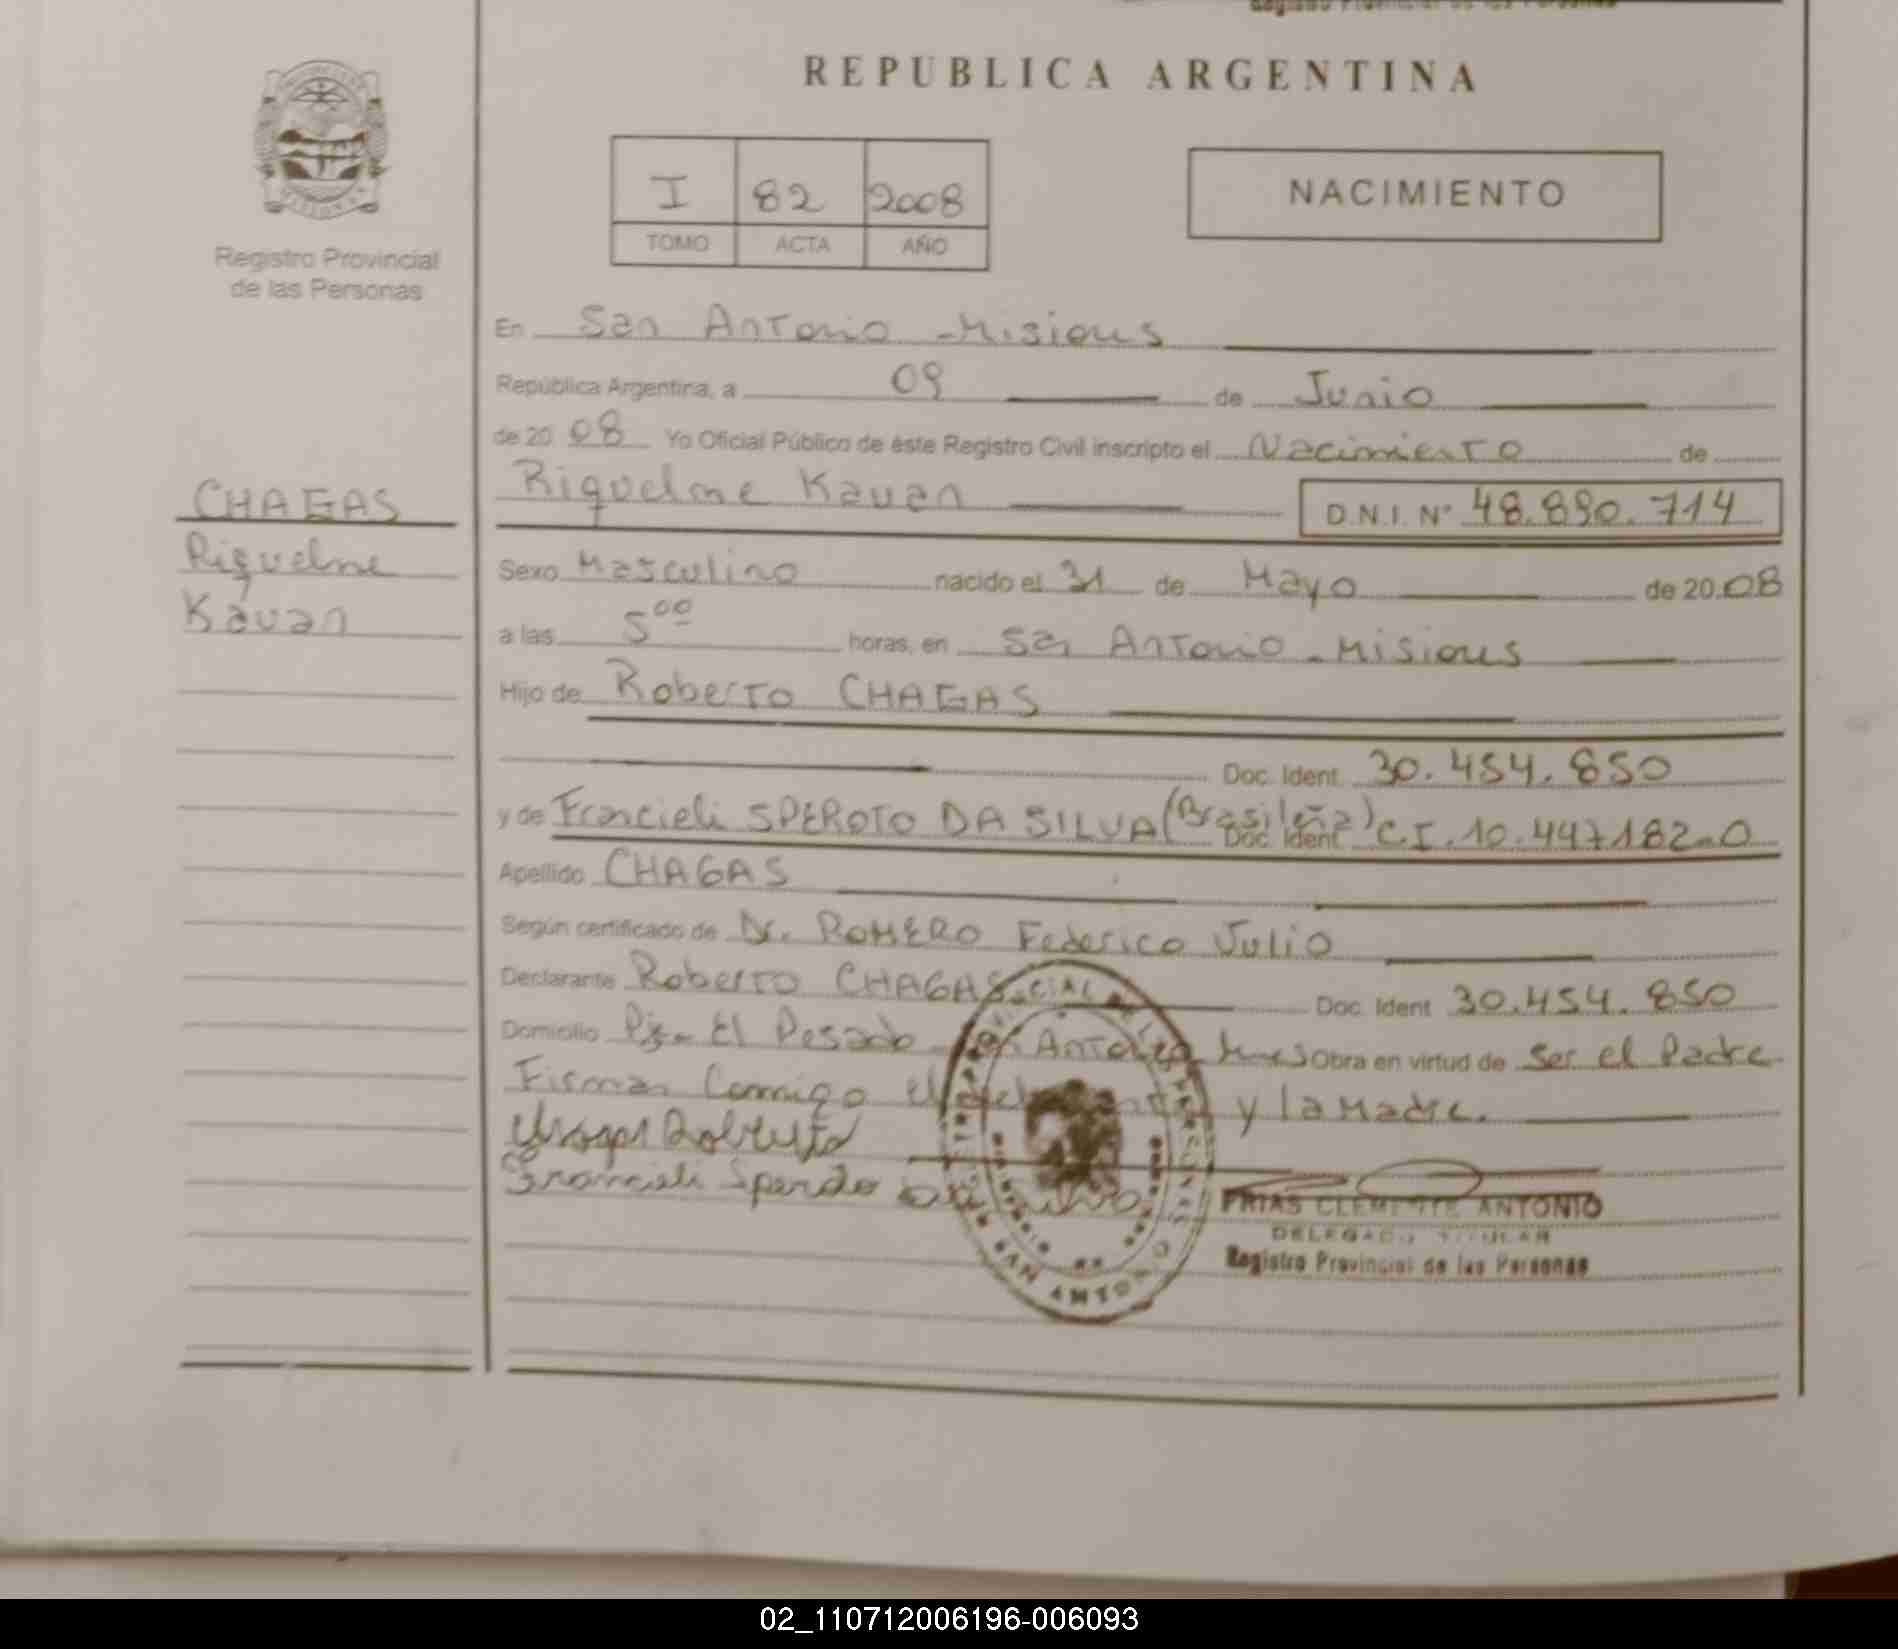 REPUBLICA ARGENTINA
I 82 2008
TOMO ACTA AÑO
NACIMIENTO
Registro Provincial
de las Personas
CHAGAS
Riquelme
Kauan
En San Antonio - Misiones
República Argentina, a 09 de Junio
de 20 08 Yo Oficial Público de éste Registro Civil inscripto el Nacimiento de
Riquelme Kauan D.N.I. N° 48.890.714
Sexo Masculino nacido el 31 de Mayo de 20 08
a las 5 00 horas, en San Antonio - Misiones
Hijo de Roberto CHAGAS
Doc. Ident. 30.454.850
y de Francieli SPEROTO DA SILVA (Brasileña) Doc. Ident. C.I. 10.447182-0
Apellido CHAGAS
Según certificado de Dr. ROMERO Federico Julio
Declarante Roberto CHAGAS Doc. Ident. 30.454.850
Domicilio El Pesado Obra en virtud de ser el Padre
Firman Conmigo el y la Madre.
Chagas Roberto
Francieli
FRIAS CLEMENTE ANTONIO
DELEGADO TITULAR
Registro Provincial de las Personas
SAN ANTONIO
02_110712006196-006093